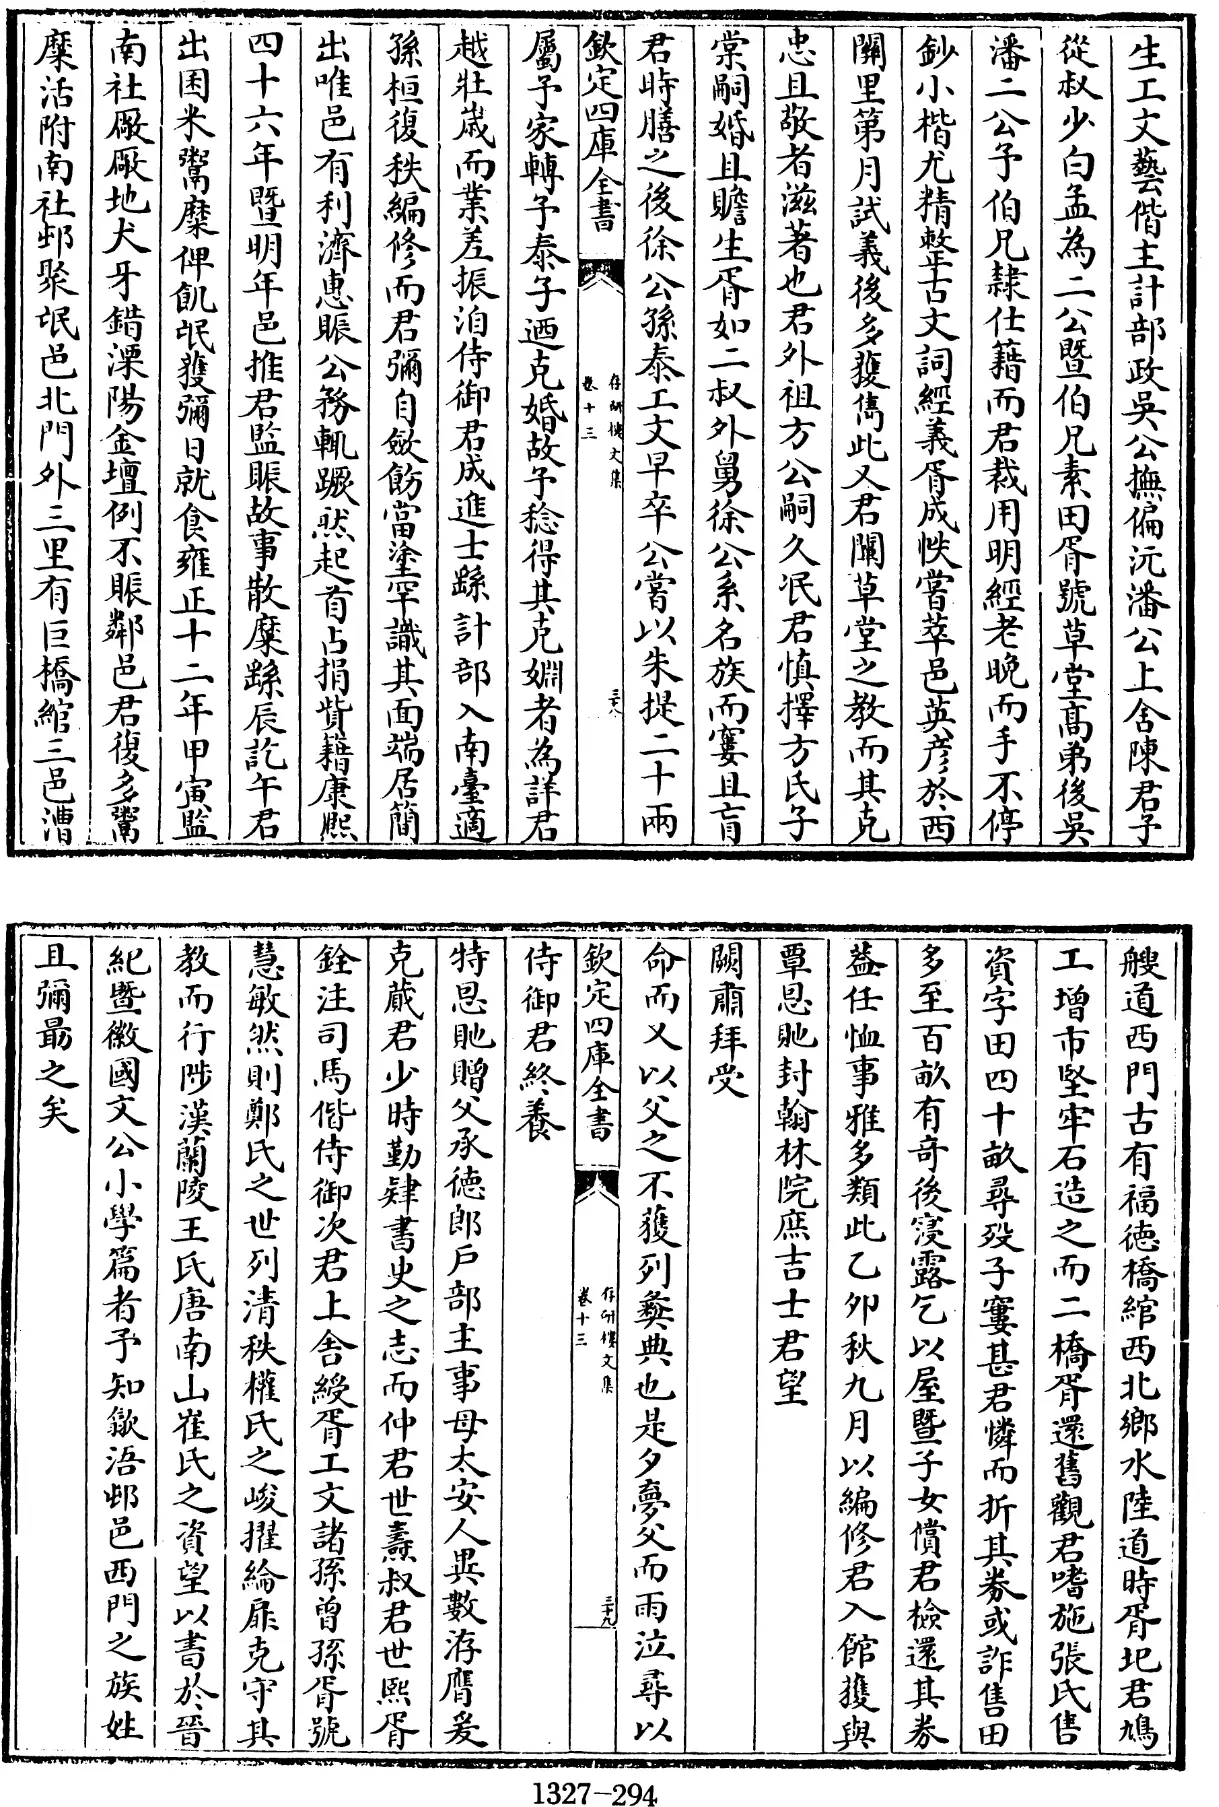 生工文藝偕主計部政吳公撫偏沅潘公上舍陳君子
從叔少白孟為二公暨伯兄素田胥號草堂高弟後吳
潘二公予伯兄隸仕籍而君裁用明經老晚而手不停
鈔小楷尤精整古文詞經義胥成帙嘗萃邑英彥於西
關里第月試義後多獲雋此又君闡草堂之教而其克
忠且敬者滋著也君外祖方公嗣久泯君慎擇方氏子
棠嗣婚且贍生胥如二叔外舅徐公系名族而窶且盲
君時膳之後徐公孫泰工文早卒公嘗以朱提二十兩
欽定四庫全書
存研樓文集
卷十三
三十八
屬予家轉予泰子迺克婚故予稔得其克婣者為詳君
越壯歲而業差振洎侍御君成進士繇計部入南臺適
孫桓復秩編修而君彌自斂飭當塗罕識其面端居簡
出唯邑有利濟惠賑公務輒蹶然起首占捐貲籍康熙
四十六年暨明年邑推君監賑故事散糜繇辰訖午君
出囷米鬻糜俾飢氓獲彌日就食雍正十二年甲寅監
南社厰厰地犬牙錯溧陽金壇例不賑鄰邑君復多鬻
糜活附南社邨聚氓邑北門外三里有巨橋綰三邑漕
艘道西門古有福德橋綰西北鄉水陸道時胥圯君鳩
工增市堅牢石造之而二橋胥還舊觀君嗜施張氏售
資字田四十畝尋歿子窶甚君憐而折其券或詐售田
多至百畝有奇後寖露乞以屋暨子女償君檢還其券
葢任恤事雅多類此乙夘秋九月以編修君入館獲與
覃恩貤封翰林院庶吉士君望
闕肅拜受
命而又以父之不獲列彝典也是夕夢父而雨泣尋以
欽定四庫全書
存研樓文集
卷十三
三十九
侍御君終養
特恩貤贈父承德郎戶部主事母太安人異數洊膺爰
克蕆君少時勤肄書史之志而仲君世壽叔君世熙胥
銓注司馬偕侍御次君上舍綬胥工文諸孫曾孫胥號
慧敏然則鄭氏之世列清秩權氏之峻擢綸扉克守其
教而行陟漢蘭陵王氏唐南山崔氏之資望以書於晉
紀暨徽國文公小學篇者予知歙浯邨邑西門之族姓
且彌最之矣
1327-294